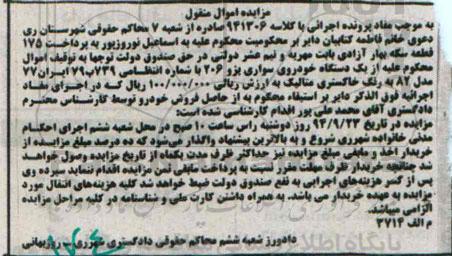 مزایده اموال منقول
به موجب مفاد پرونده اجرائی با کلاسه ۹۴۱۳۰۶ صادره از شعبه ۷ محاکم حقوقی شهرستان ری
دعوی خانم فاطمه کتابیان دایر بر محکومیت محکوم علیه به اسماعیل نوروزپور به پرداخت ۱۷۵
قطعه سکه بهار آزادی بابت مهریه و نیم عشر دولتی در حق صندوق دولت توجها به توقیف اموال
محکوم علیه از یک دستگاه خودروی سواری پژو ۲۰۶ با شماره انتظامی ۲۳۹ب۷۹ ایران ۷۷
مدل ۸۷ به رنگ خاکستری متالیک به ارزش ریالی ۱۰۰/۰۰۰/۰۰۰ ریال که در اجرای مفاد
اجرائیه فوق الذکر دایر بر استیفاء محکوم به از حاصل فروش خودرو توسط کارشناس محترم
دادگستری آقای محمد علی پور اقدام کارشناسی شده است:
مزایده در تاریخ ۹۴/۹/۲۳ روز دوشنبه راس ساعت ۱۰ صبح در محل شعبه ششم اجرای احکام
مدنی خانواده شهرری شروع و به بالاترین پیشنهاد واگذار می‌شود که ده درصد مبلغ مزایده از
خریدار اخذ و مابقی مبلغ مزایده نیز حداکثر ظرف مدت یکماه از تاریخ مزایده وصول خواهد
شد چنانچه خریدار ظرف مهلت مقرر نسبت به پرداخت مابقی ثمن مزایده اقدام ننماید سپرده وی
پس از کسر هزینه‌های اجرایی به نفع صندوق دولت ضبط خواهد شد کلیه هزینه‌های انتقال مورد
مزایده به عهده خریدار می باشد. به همراه داشتن کارت ملی و شناسنامه در کلیه مراحل مزایده
الزامی میباشد.
م الف ۳۷۱۴
دادورز شعبه ششم محاکم حقوقی دادگستری شهرری – روزبهانی